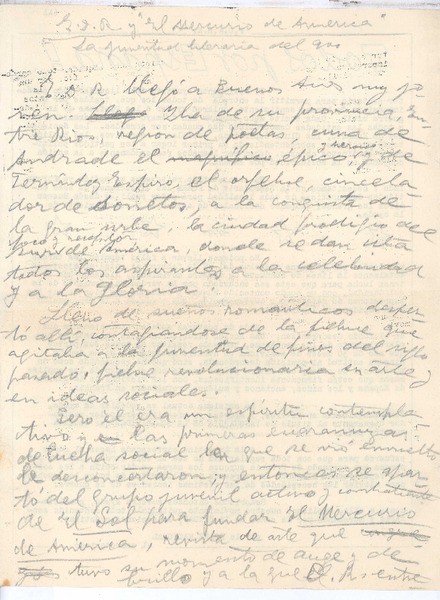 E. D. R y "El Mercurio de America"
La juventud literaria del 900
E. D. R llegó a Buenos Aires muy jo
ven. Iba de su provincia, En
tre Rios, region de poetas, cuna de
Andrade el magnifico épico, y de
Fernández Espiro, el orfebre, cincela
dor de sonetos, a la conquista de
la gran urbe, la ciudad prodigio del
Sur de America, donde se dan cita
todos los aspirantes a la celebridad
y a la Gloria.
Lleno de sueños romanticos desper
tó alli, contagiandose de la fiebre que
agitaba a la juventud de fines del siglo
pasado, fiebre revolucionaria en arte y
en ideas sociales.
Pero el era un espiritu contempla
tivo y en las primeras escaramuzas
de lucha social en que se vió envuelto
le desconcertaron, y entonces se apar
tó del grupo juvenil activo y combatiente
de El Sol para fundar El Mercurio
de America, revista de arte que
tuvo su momento de auge y de
brillo y a la que E. D. R. entre